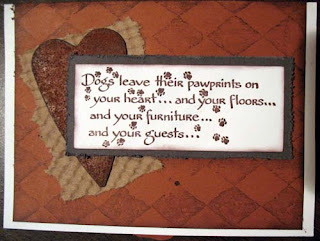 Dogs leave their pawprints on
your heart... and your floors...
and your furniture...
and your guests...